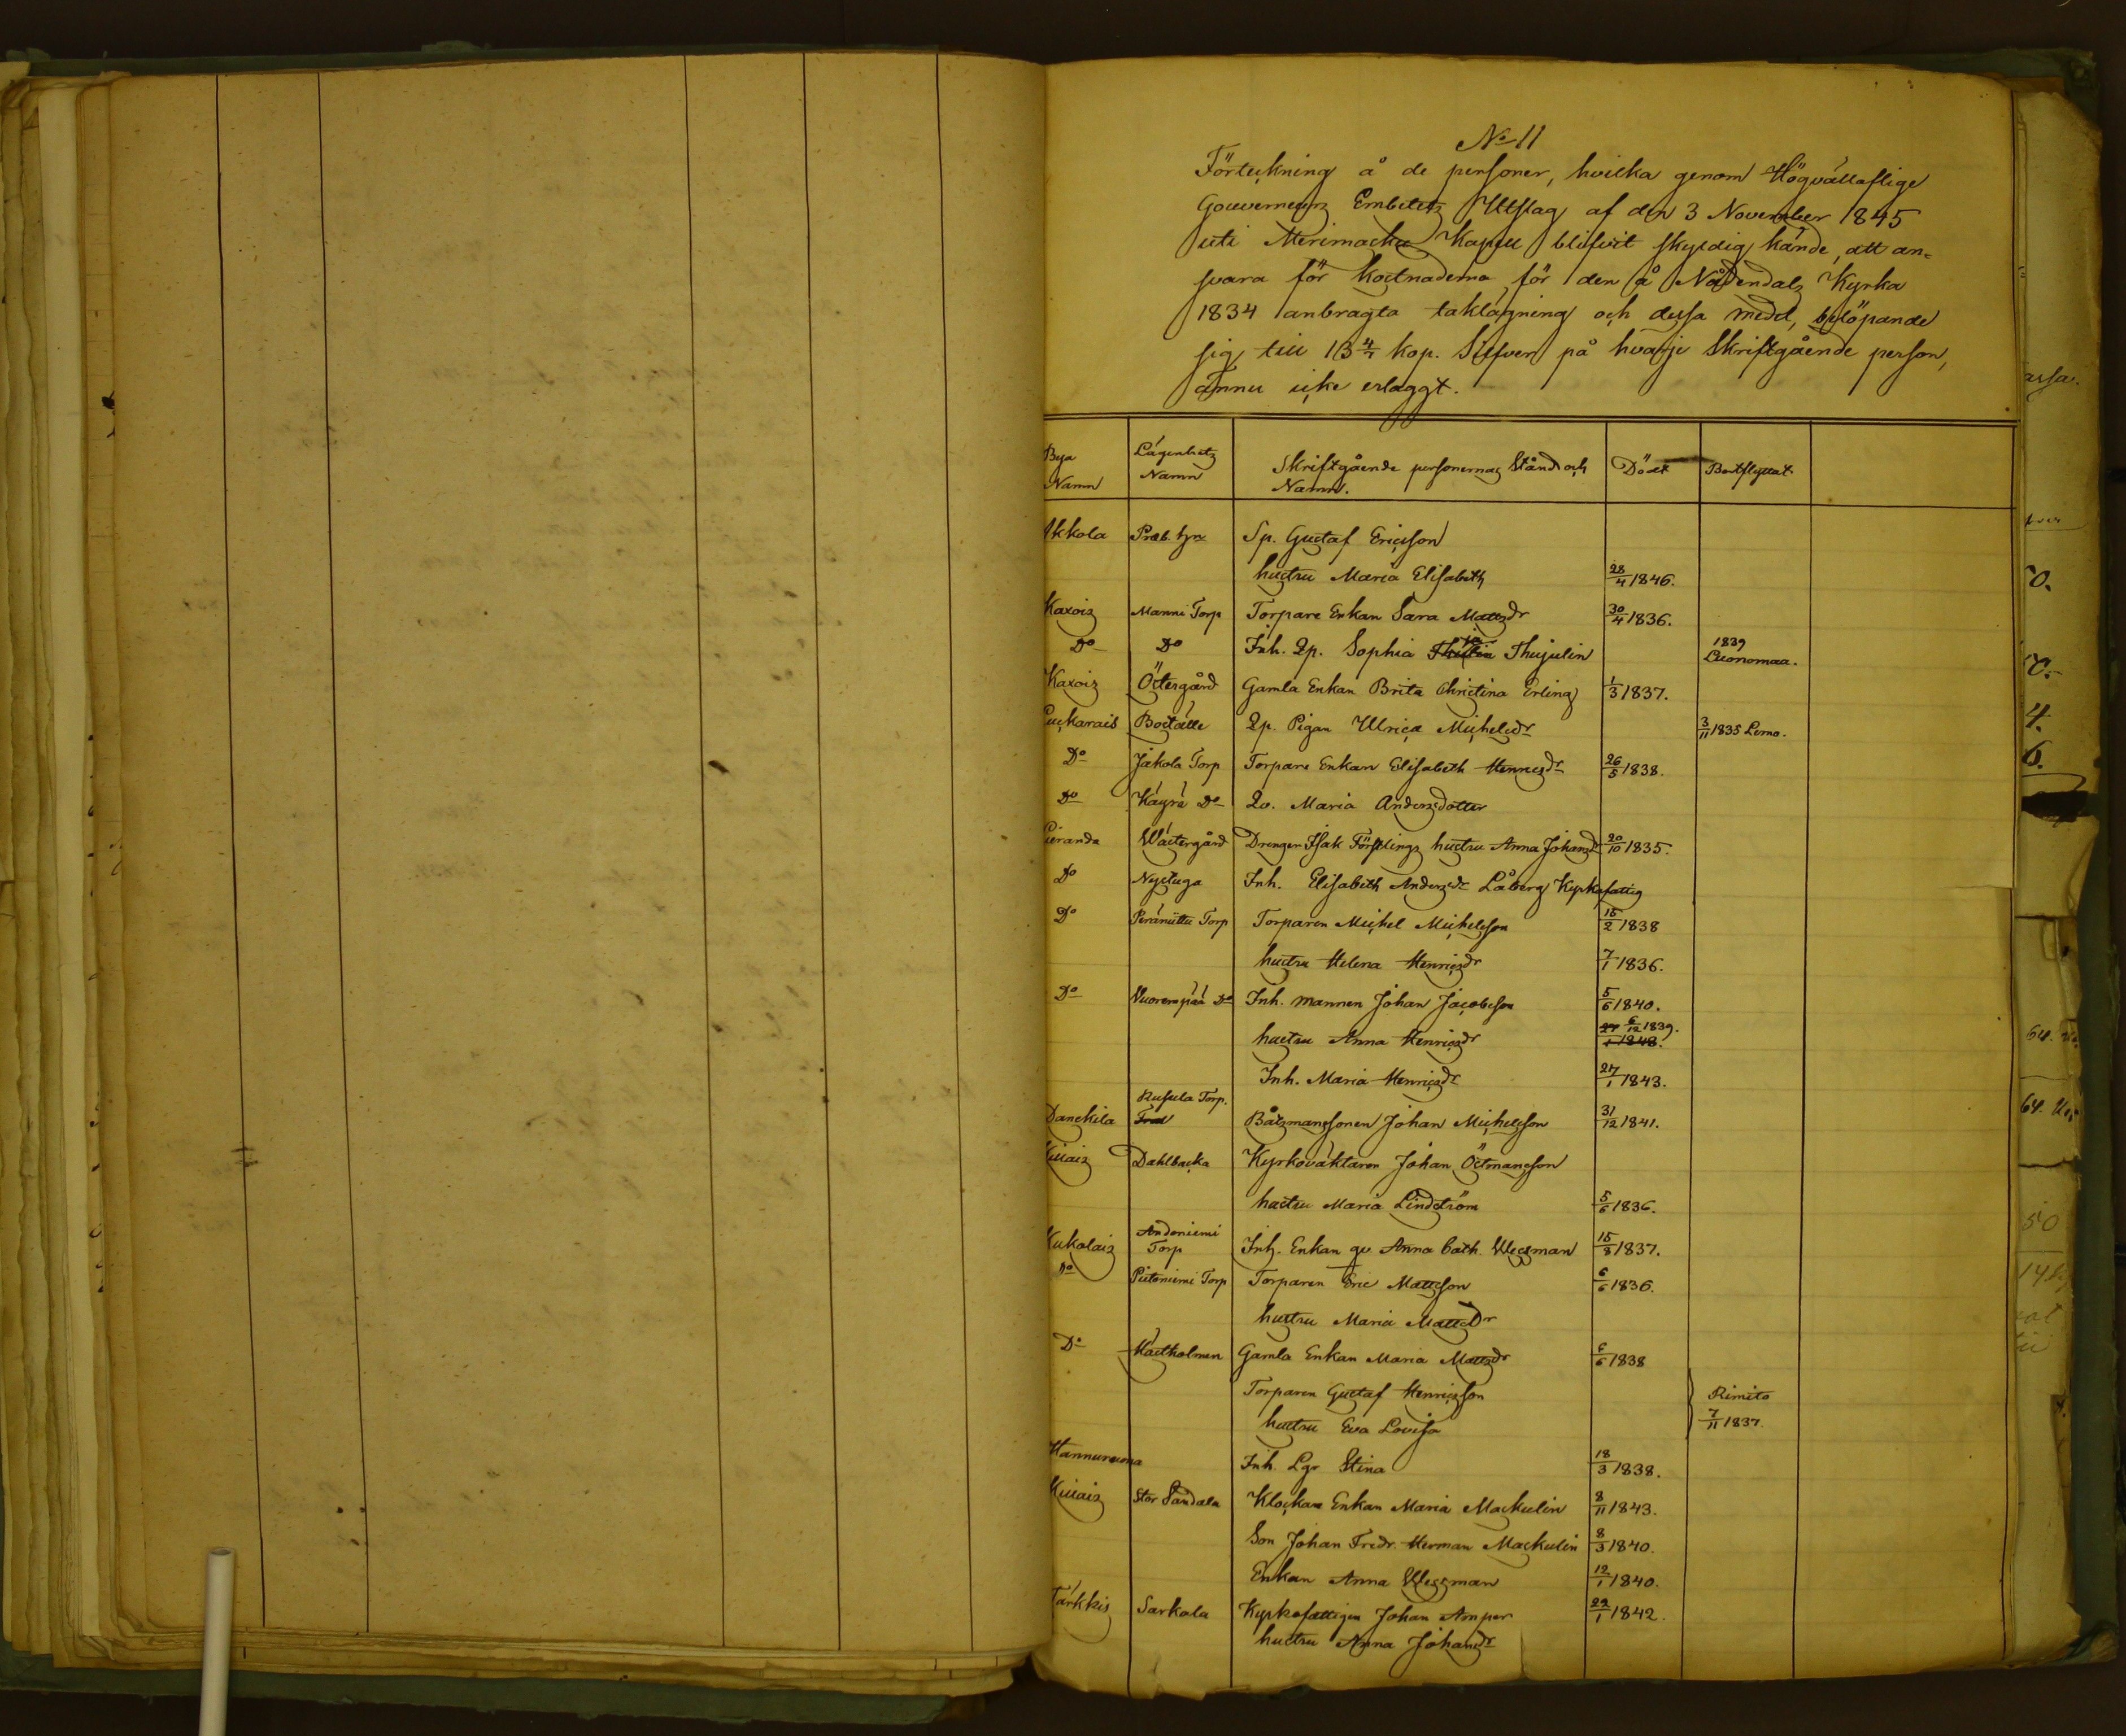 No 11
Förteckning å de personer, hvilka genom Högvälloflige
Gouverneurs Embetets Utslag af den 3 November 1845
uti Merimasku Kapell blifvit skyldig kände, att an-
svara för kostnaderna för den å Nådendals Kyrka
1834 anbragta takläggning och dessa medel, belöpande
sig till 13 4/7 kop. Silfver på hvarje Skriftgående person,
ännu icke erlaggt.
Bya Namn Lägenhets Namn Skriftgående personernas Stånd och Namn. Dödt Bortflyttat
Akkola Præb. Sp. Gustaf Ericsson
hustru Maria Elisabeth 28/4 1846.
Kaxois Manni Torp Torpare Enkan Sara Mattsdr 30/4 1836.
Do Do Inh. Qp. Sophia Thujulin 1839 Luonomaa.
Kaxois Östergård Gamla Enkan Brita Christina Erling 1/3 1837.
Puckarais Boställe Qp. Pigan Ulrica Michelsdr 3/11 1835 Lemo.
Do Jakola Torp Torpare Enkan Elisabeth Henricsdr 26/5 1838.
Do Käyrä Do Qv. Maria Andersdotter
Wästergård Drengen Isak Förstlings hustru Anna Johansdr 20/10 1835.
Do Nystuga Inh. Elisabeth Andersdr Låberg Kyrkofattig
Do Peräniittu Torp Torparen Michel Michelsson 15/2 1838
hustru Helena Henricsdr 7/1 1836.
Do Vuorenpää Do Inh. mannen Johan Jacobsson 5/6 1840.
hustru Anna Henricsdr 6/12 1839.
Inh. Maria Henricsdr 27/1 1843.
Danskila Torp. Båtzmanssonen Johan Michelsson 31/12 1841.
Killais Dahlbacka Kyrkoväktaren Johan Östmansson
hustru Maria Lindström 5/6 1836.
Kukolais Andoniemi Torp Inh. Enkan qv. Anna Cath. Wessman 15/8 1837.
Do Piitoniemi Torp Torparen Eric Mattsson 6/6 1836.
hustru Maria Mattsdr
Do Hästholmen Gamla Enkan Maria Mattsdr 6/6 1838
Torparen Gustaf Henricsson Rimito
hustru Eva Lovisa 7/11 1837.
Hannuranna Inh. Lgr Stina 18/3 1838.
Killais Stor Sandala Klockare Enkan Maria Maskulin 8/11 1843.
Son Johan Fredr. Herman Maskulin 8/3 1840.
Enkan Anna Wessman 12/1 1840.
Tärkkis Sarkala Kyrkofattigen Johan Amper 22/1 1842.
hustru Anna Johansdr